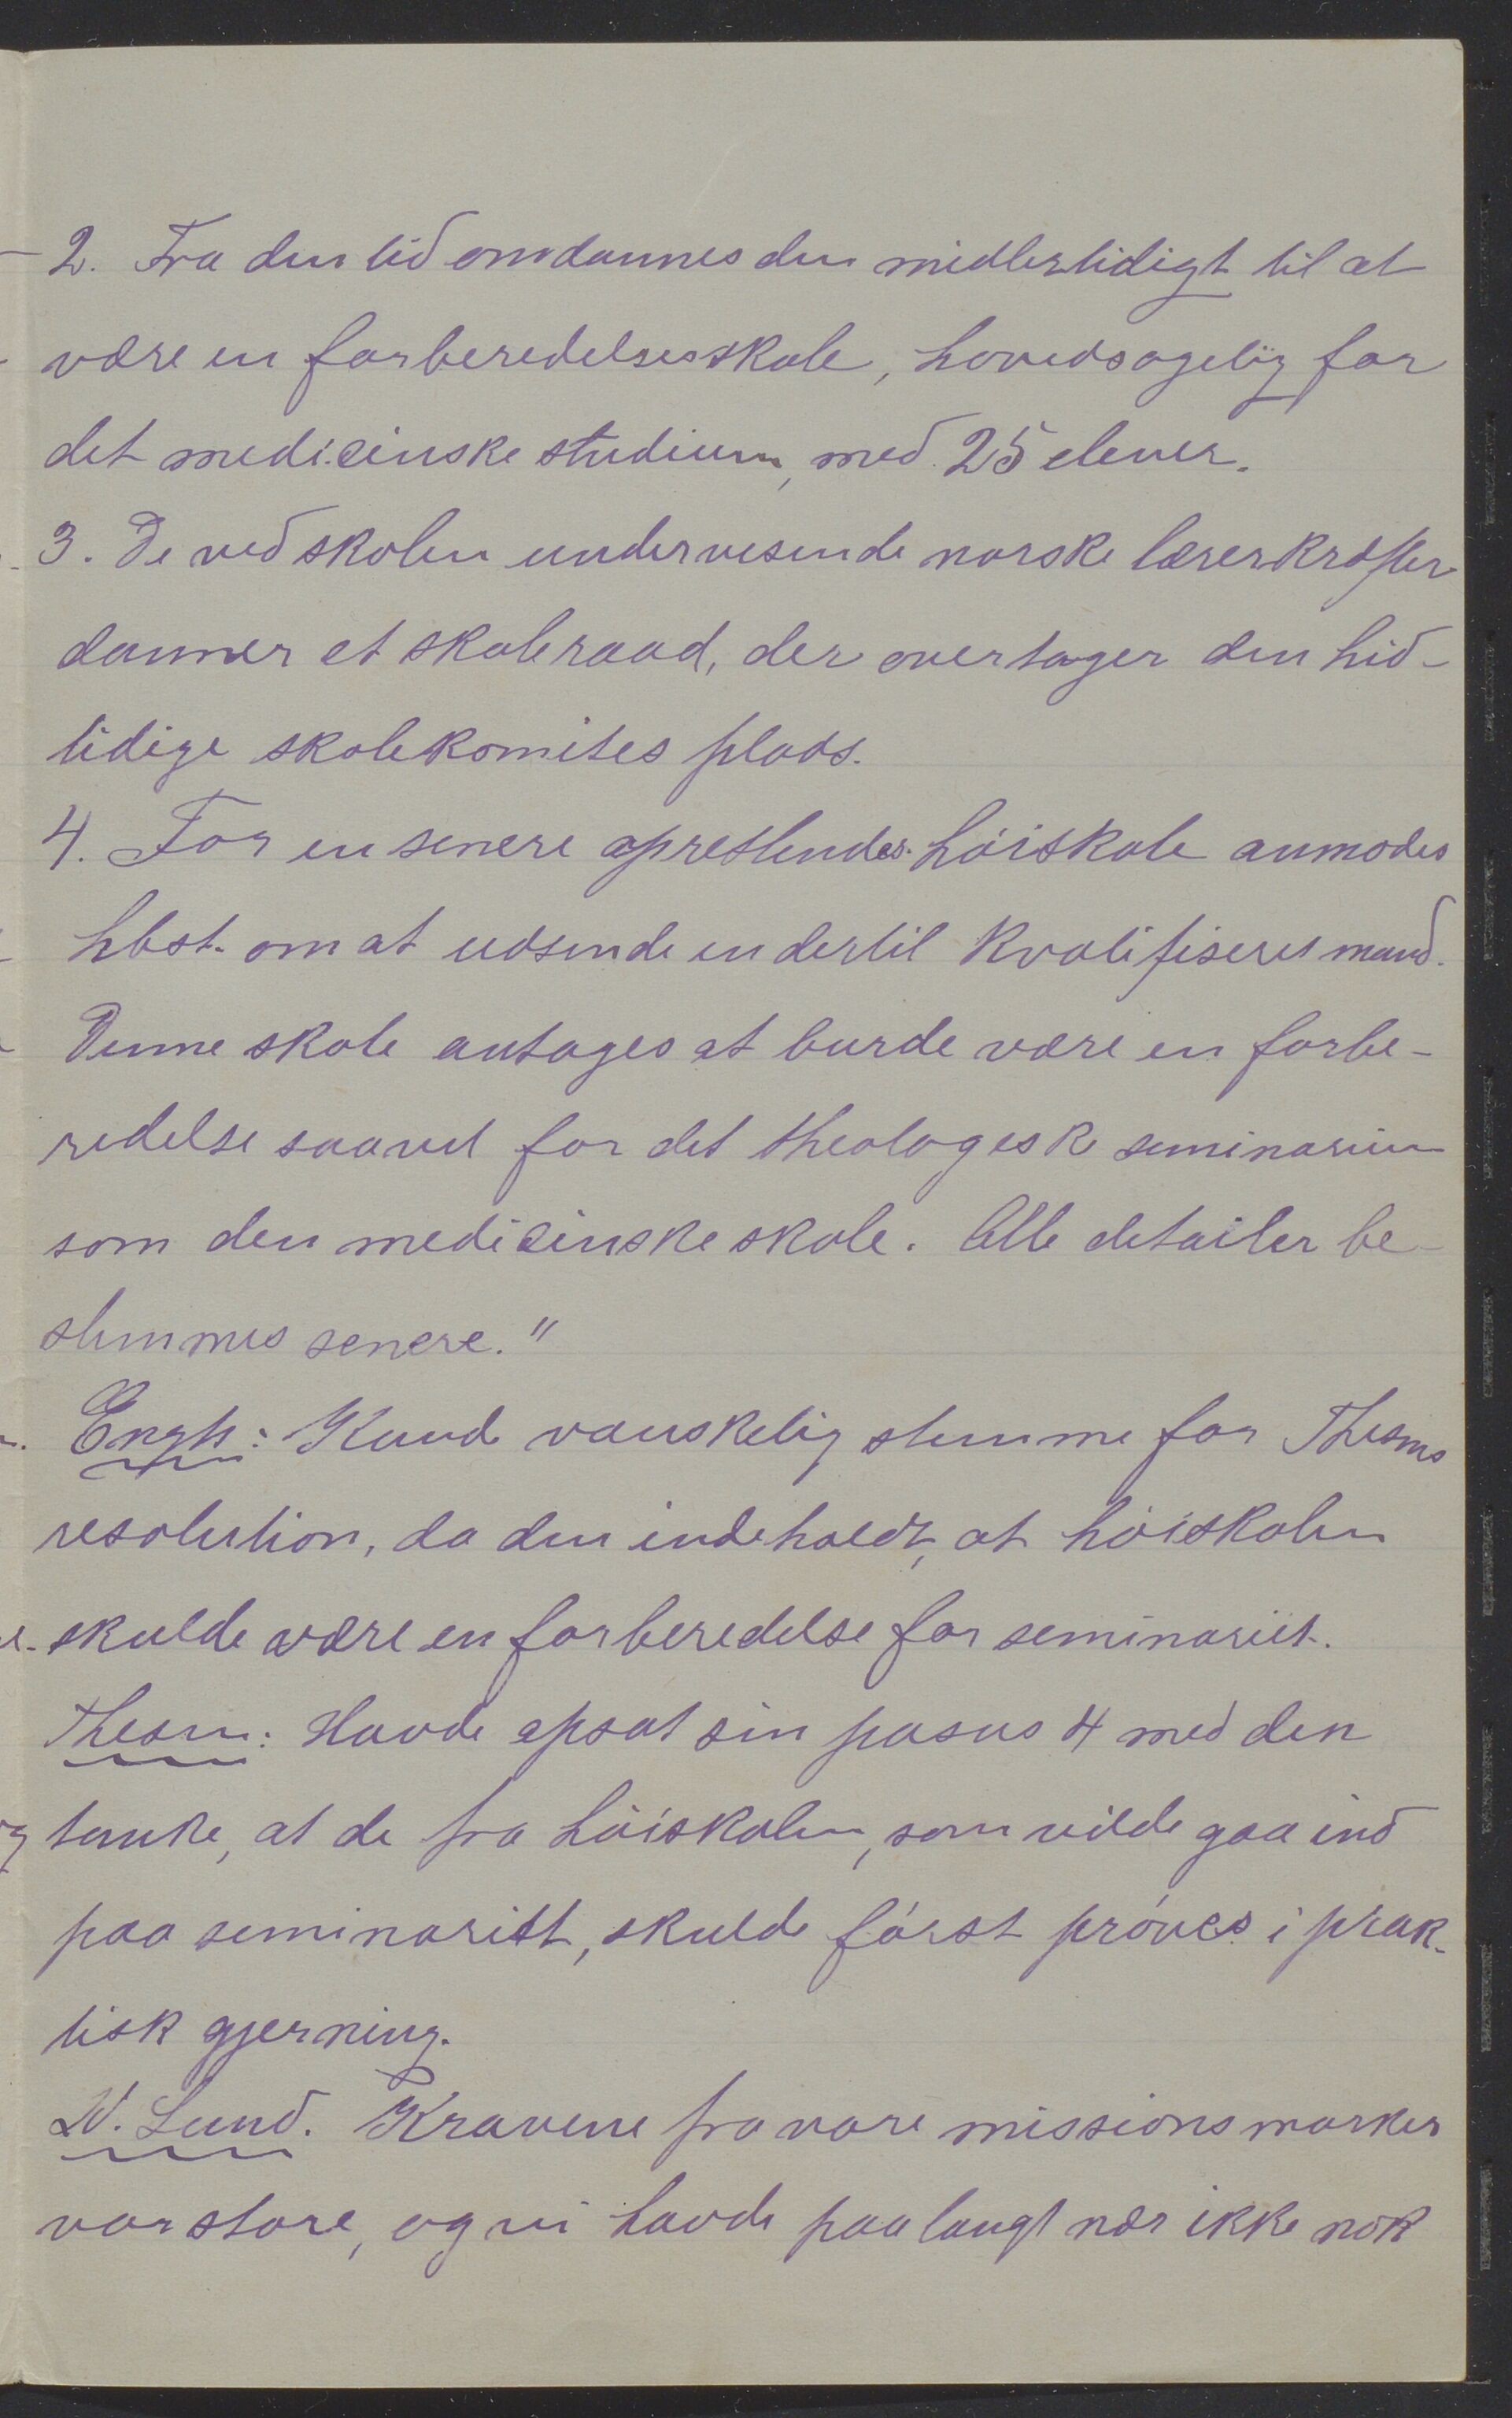 2. Fra den tid omdannes den midlertidigt til at
være en forberedelsesskole, hovedsagelig for
det medicinske studium, med 25 elever.
3. De ved skolen undervisende norske lærerkræfter
danner et skoleraad, der overtager den hid-
tidige skolekomites plads.
4. For en senere oprettendes høiskole anmodes
hbst. om at udsende en dertil kvalifiseret mand.
Denne skole antages at burde være en forbe-
redelse saavel for det theologiske seminarium
som den medicinske skole. Alle detailer be-
stemmes senere."
Engh: Kunde vanskelig stemme for Thesms
resolution, da den indeholdt, at høiskolen
skulde være en forberedelse for seminariet.
Thesm: Havde opsat sin passus 4 med den
tanke, at de fra høiskolen, som vilde gaa ind
paa seminariet, skulde først prøves i prak-
tisk gjerning.
V. Lund. Kravene fra vore missionsmarker
var store, og vi havde paa langt nær ikke nok